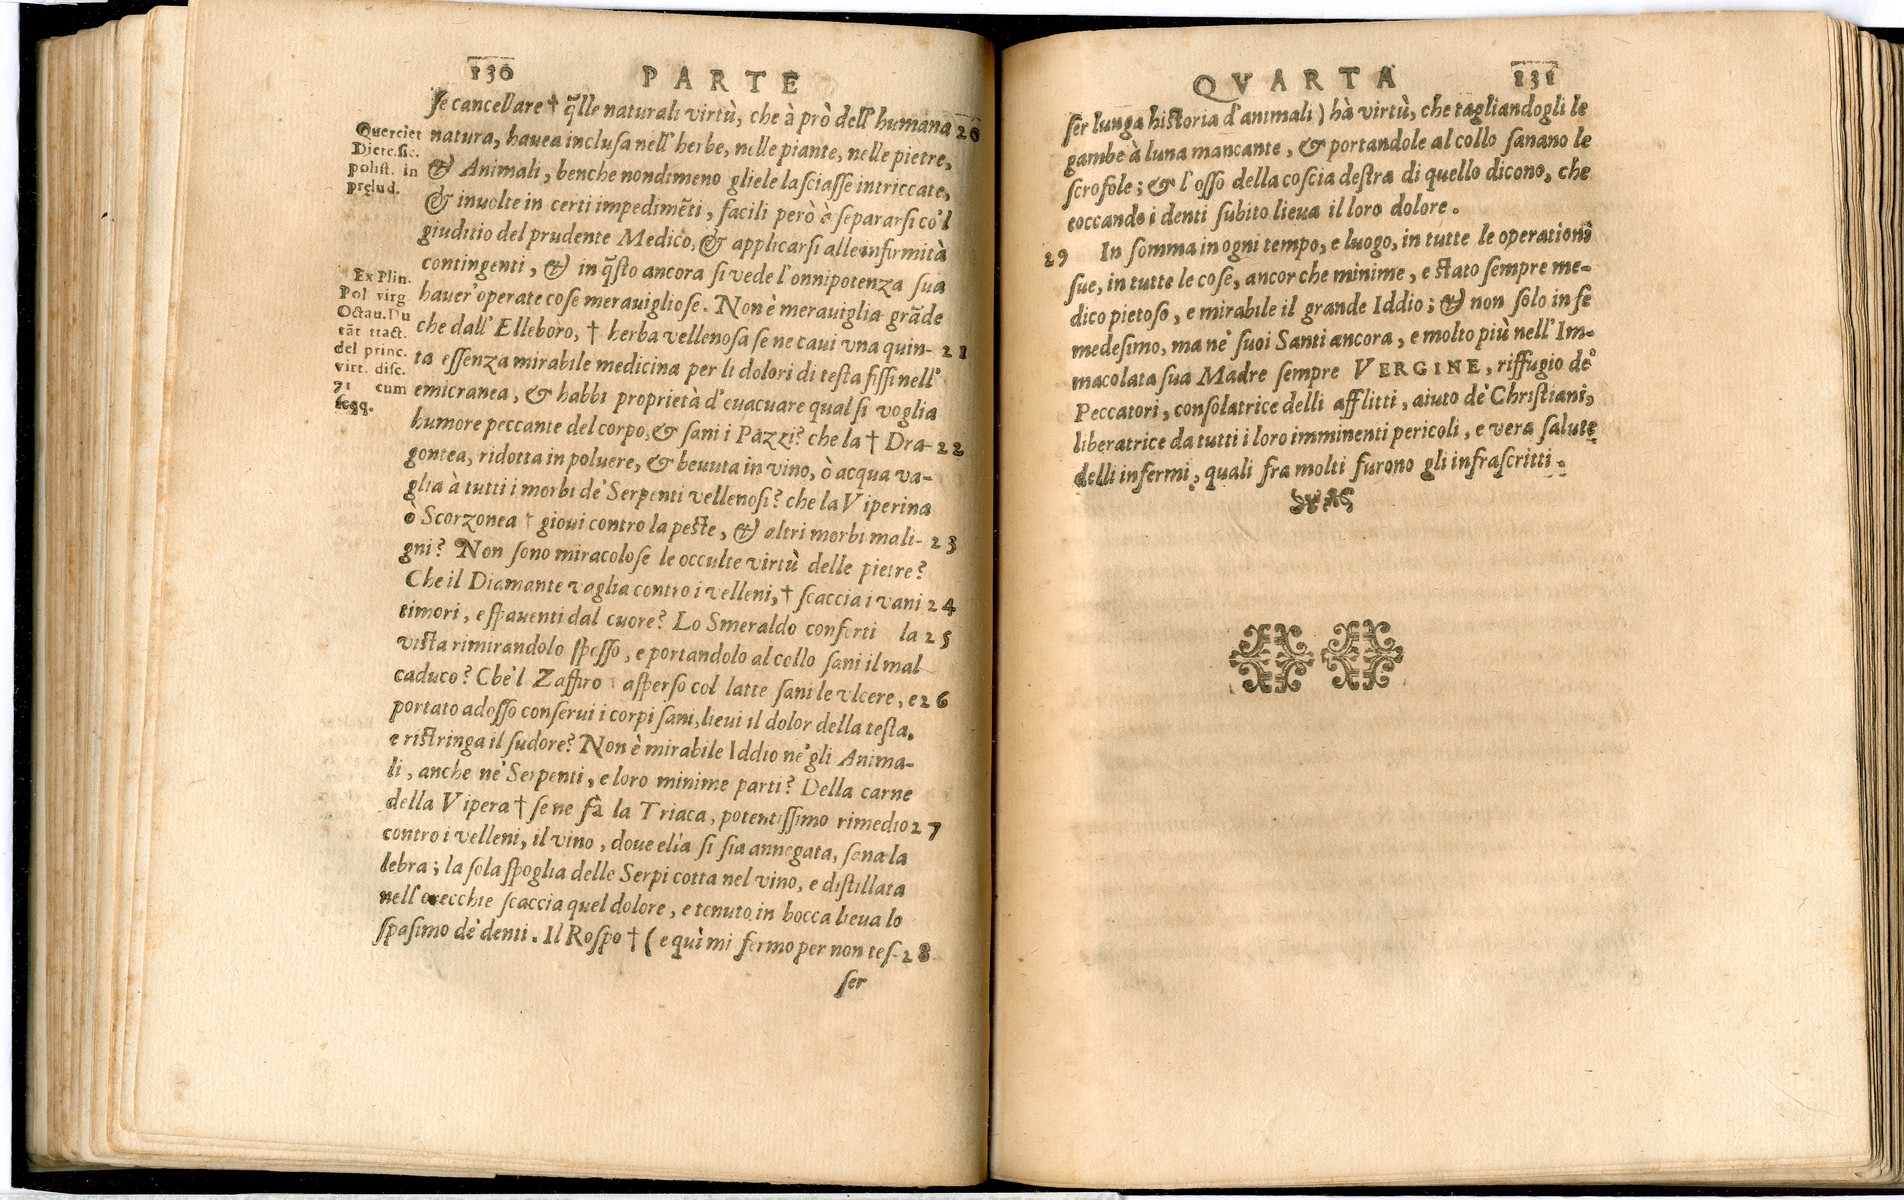 130 PARTE
se cancellare † q̃lle naturali virtù, che à prò dell'humana 20
natura, hauea inclusa nell'herbe, nelle piante, nelle pietre,
& Animali, benche nondimeno gliele lasciasse intriccate,
& inuolte in certi impedimẽti, facili però è separarsi co'l
giuditio del prudente Medico, & applicarsi alle infirmità
contingenti, & in q̃sto ancora si vede l'onnipotenza sua
hauer'operate cose merauigliose. Non è merauiglia grãde
che dall'Elleboro, † herba vellenosa se ne caui vna quin- 21
ta essenza mirabile medicina per li dolori di testa fissi nell'
emicranea, & habbi proprietà d'euacuare qual si voglia
humore peccante del corpo, & sani i Pazzi? che la † Dra- 22
gontea, ridotta in poluere, & beuuta in vino, ò acqua va-
glia à tutti i morbi de' Serpenti vellenosi? che la Viperina
ò Scorzonea † gioui contro la peste, & altri morbi mali- 23
gni? Non sono miracolose le occulte virtù delle pietre?
Che il Diamante vaglia contro i velleni, † scaccia i vani 24
timori, e spauenti dal cuore? Lo Smeraldo conforti la 25
vista rimirandolo spesso, e portandolo al collo sani il mal
caduco? Che'l Zaffiro asperso col latte sani le vlcere, e 26
portato adosso conserui i corpi sani, lieui il dolor della testa,
e ristringa il sudore? Non è mirabile Iddio ne'gli Anima-
li, anche ne' Serpenti, e loro minime parti? Della carne
della Vipera † se ne fà la Triaca, potentissimo rimedio 27
contro i velleni, il vino, doue ella si sia annegata, sana la
lebra; la sola spoglia delle Serpi cotta nel vino, e distillata
nell'orecchie scaccia quel dolore, e tenuto in bocca lieua lo
spasimo de' denti. Il Rospo † ( e quì mi fermo per non tes- 28
ser
Quercièt
Diete. sic.
polist. in
prelud.
Ex Plin.
Pol virg
Octau. Du
rãt tract.
del princ.
virt. disc.
71 cum
seqq.
QVARTA 131
ser lunga historia d'animali ) hà virtù, che tagliandogli le
gambe à luna mancante, & portandole al collo sanano le
scrofole; & l'osso della coscia destra di quello dicono, che
toccando i denti subito lieua il loro dolore.
29 In somma in ogni tempo, e luogo, in tutte le operationi
sue, in tutte le cose, ancor che minime, e stato sempre me-
dico pietoso, e mirabile il grande Iddio; & non solo in se
medesimo, ma nè suoi Santi ancora, e molto più nell'Im-
macolata sua Madre sempre VERGINE, riffugio de'
Peccatori, consolatrice delli afflitti, aiuto de' Christiani,
liberatrice da tutti i loro imminenti pericoli, e vera salute
delli infermi, quali fra molti furono gli infrascritti.